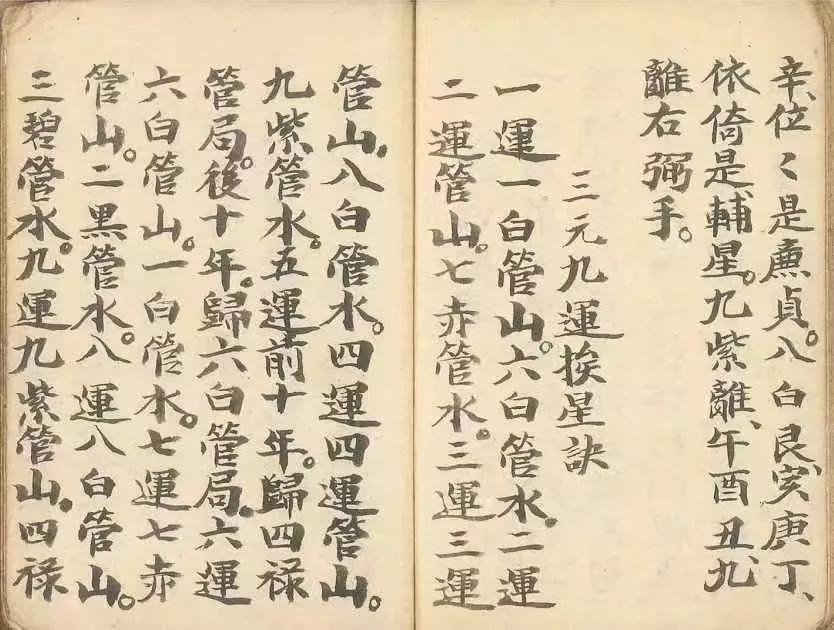 辛、位々是廉貞。八白艮、亥庚丁、
依倚是、輔星。九紫離、午酉丑、九
離右弼手。
三元九運挨星訣
一運一白管山。六白管水。二運
二運管山。七赤管水。三運三運
管山。八白管水。四運四運管山。
九紫管水。五運前十年。歸四祿
管局。後十年。歸六白管局。六運
六白管山。一白管水。七運七赤
管山。二黑管水。八運八白管山。
三碧管水。九運九紫管山。四祿